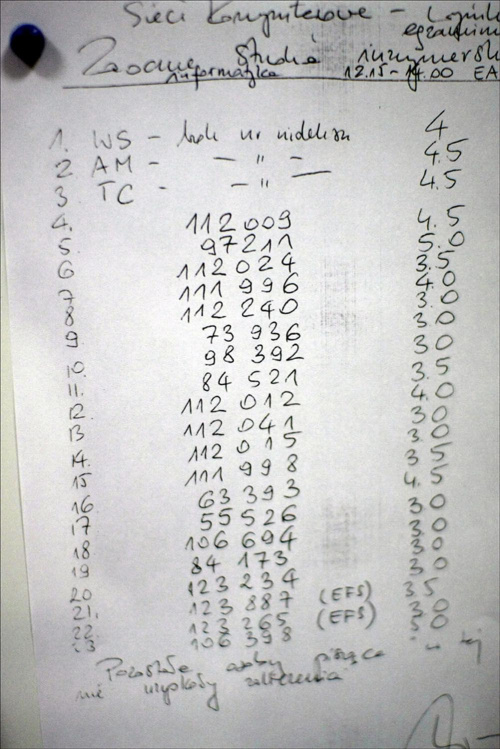 Sieci Komputerowe -
Zaoczne Studia inżyniersk
informatyka 12.15-14.00 EA
1. WS - brak nr indeksu 4
2 AM - - " - 4.5
3. TC - - " - 4.5
4. 112 009 4.5
5. 97 211 5.0
6 112 024 3.5
7 111 996 4.0
8 112 240 3.0
9. 73 936 3.0
10. 98 392 3.0
11. 84 521 3.5
12. 112 012 4.0
13 112 041 3.0
14. 112 015 3.5
15 111 998 4.5
16 63 393 3.0
17 55 526 3.0
18 106 694 3.0
19 84 173 3.0
20 123 234 3.5
21. 123 887 (EFS) 3.0
22. 123 265 (EFS) 3.0
23 106 398
Pozostałe osoby piszące w tej
nie uzyskały zaliczenia